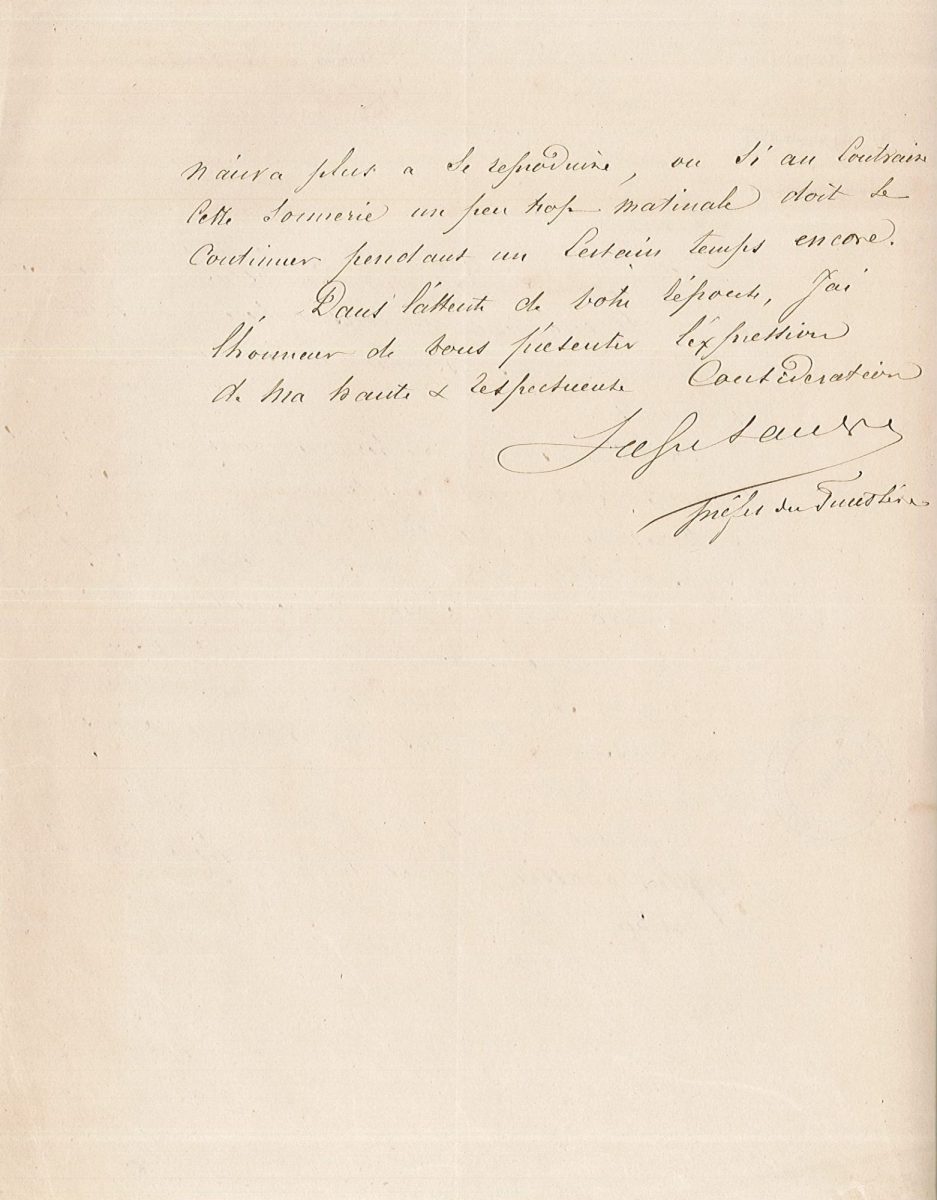 n'aura plus a se reproduire, ou si au Contraire
Cette sonnerie un peu trop matinale doit se
Continuer pendant un Certain temps encore.
Dans l'attente de votre réponse, J'ai
l'honneur de vous présenter l'expression
de ma haute & respectueuse Considération
du